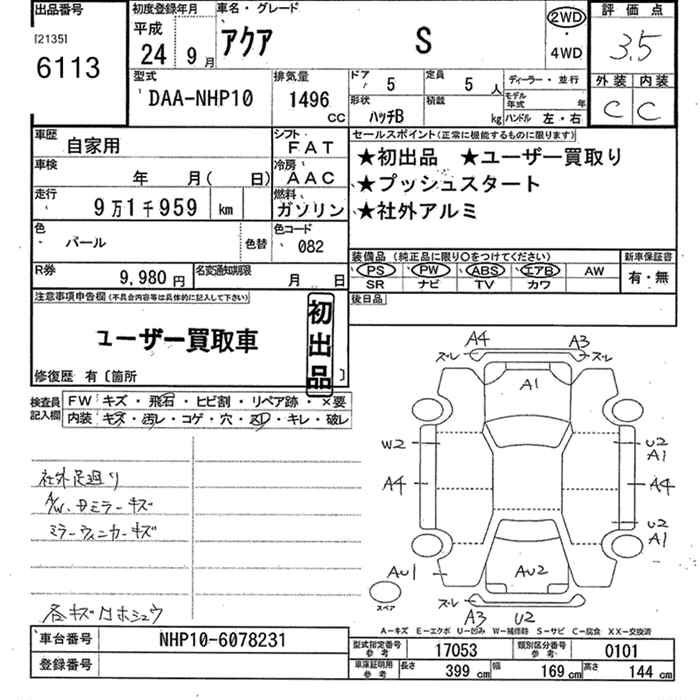 出品番号 初度登録年月 車名・グレード 2WD 評価点
[2135] 平成 アクア S ・ 3.5
6113 24 9月 4WD
型式 排気量 ドア 定員 ディーラー・並行 外装 内装
DAA-NHP10 1496 CC 5 5 人 モデル年式 年 C C
形状 ハッチB 積載 kg ハンドル 左・右
車歴 自家用 シフト FAT セールスポイント(正常に機能するものに限ります)
★初出品 ★ユーザー買取り
車検 年 月( 日) 冷房 AAC
★プッシュスタート
走行 9万1千959 km 燃料 ガソリン
★社外アルミ
色 パール 色替 色コード 082
装備品(純正品に限り○をつけてください) 新車保証書
PS PW ABS エアB AW 有・無
SR ナビ TV カワ
R券 9,980円 名変通知期限 月 日
後日品
注意事項申告欄(不具合内容等は具体的に記入して下さい)
ユーザー買取車
初出品
修復歴 有〔箇所 〕
検査員記入欄 FW キズ・飛石・ヒビ割・リペア跡・×要
内装 キズ・汚レ・コゲ・穴・スレ・キレ・破レ
社外足廻り
A/W、Dミラーキズ
ミラーウィンカーキズ
各キズ小ホシュウ
A4 A3
ズレ ズレ
A1
W2 U2
A1
A4 A4
U2
A1
AU1 AU2
スペア ズレ
A3 U2
A-キズ E-エクボ U-凹み W-補修跡 S-サビ C-腐食 XX-交換済
車台番号 NHP10-6078231
登録番号
型式指定番号参考 17053 類別区分番号参考 0101
車庫証明用参考 長さ 399 cm 幅 169 cm 高さ 144 cm